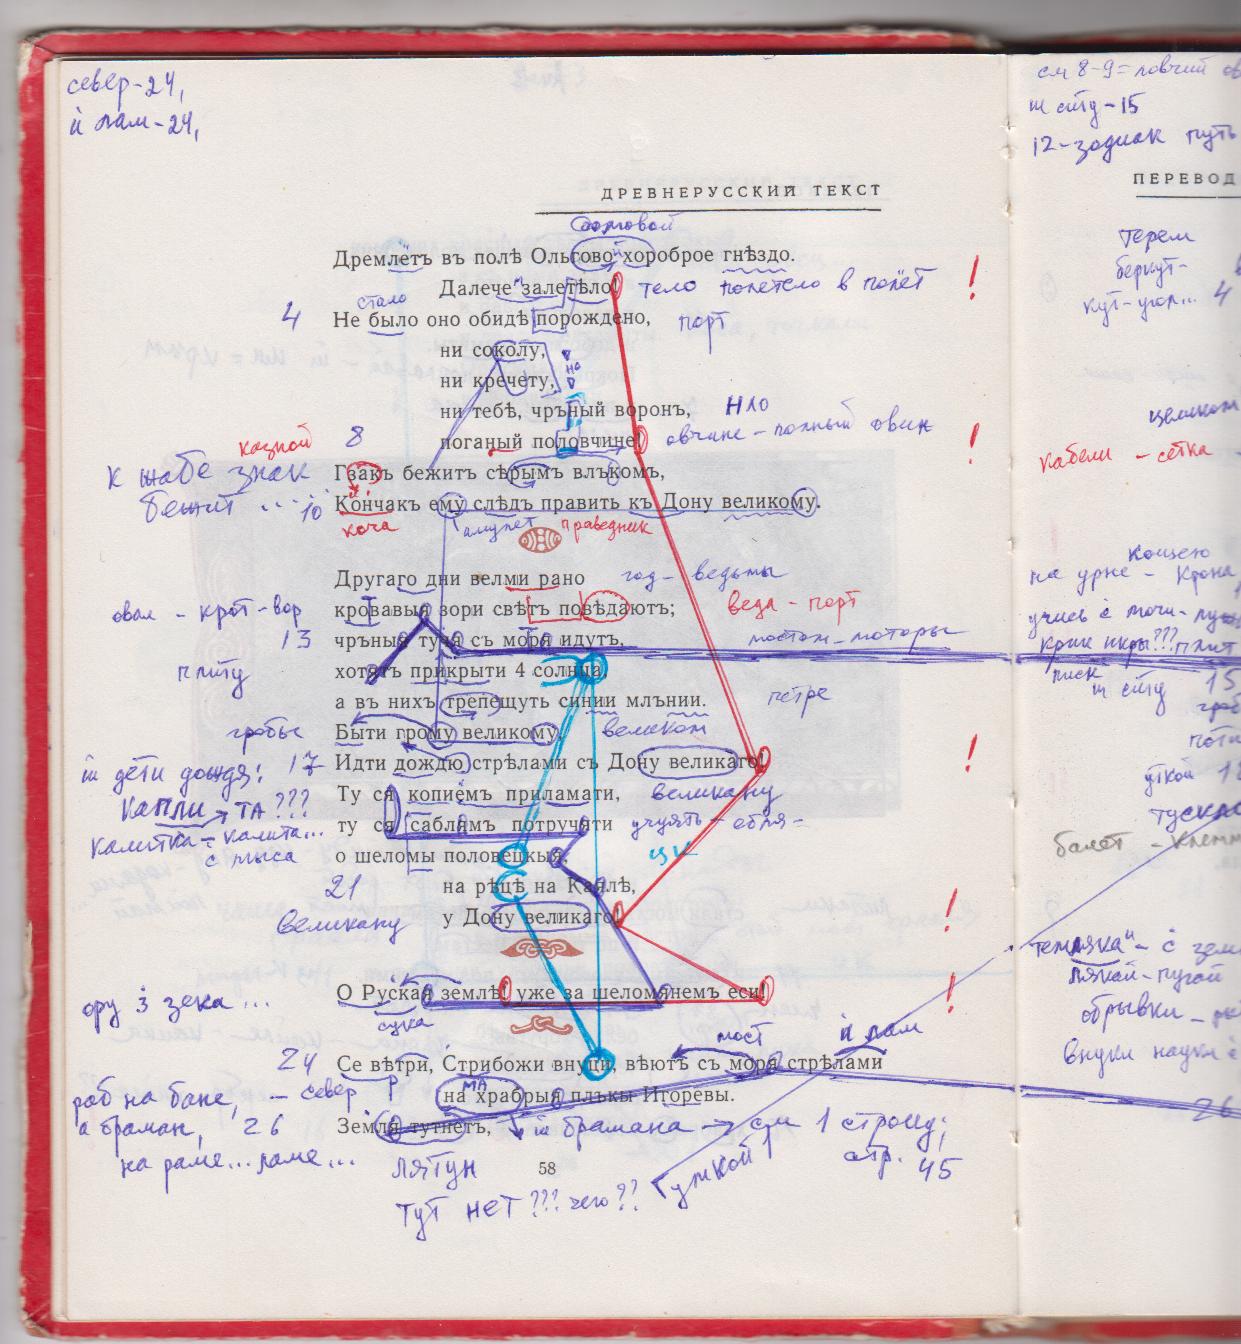 север-24,
й лам-24,
ДРЕВНЕРУССКИЙ ТЕКСТ
Дремлетъ въ полѣ Ольгово хороброе гнѣздо.
Далече залетѣло!
тело полетело в полёт
!
стало
4
Не было оно обидѣ порождено,
порт
ни соколу,
ни кречету,
на
ни тебѣ, чръный воронъ,
НЛО
казной
8
поганый половчине!
овчине - полный овин
!
К шабе знак
Гзакъ бежитъ сѣрымъ влъкомъ,
бежит ...
10
Кончакъ ему слѣдъ править къ Дону великому.
коча
амулет
праведник
Другаго дни велми рано
год - ведьмы
овал - крот-вор
кровавыя зори свѣтъ повѣдаютъ;
веда - порт
13
чръныя тучя съ моря идутъ,
мостом-моторы
плиту
хотятъ прикрыти 4 солнца,
а въ нихъ трепещуть синии млънии.
петре
гробы
Быти грому великому,
великом
ш дети дождя!
17
Идти дождю стрѣлами съ Дону великаго!
!
Капли → ТА ???
Ту ся копиемъ приламати,
великану
калитка = калита...
ту ся саблямъ потручяти
с мыса
о шеломы половецкыя,
цк
21
на рѣцѣ на Каялѣ,
великану
у Дону великаго!
!
ору з зека ...
О Руская землѣ! уже за шеломянемъ еси!
!
сука
мост
й лам
24
Се вѣтри, Стрибожи внуци, вѣютъ съ моря стрѣлами
раб на бане, - север
Р
МА
на храбрыя плъкы Игоревы.
а браман,
26
Земля тутнетъ,
ш брамана → см 1 строку;
на раме... раме...
лятун
58
стр. 45
тут нет ??? чего??
гуткой
см 8-9 = ловчий ов
ш ситу - 15
12-зодиак путь
ПЕРЕВОД
терем
беркут-
кут-угол... 4
целиком
кабели - сетка -
концею
на урне - Крона,
крик икры??? плит
писк
ш ситу 15
уткой
балет -
темляка" - с зем
лякай-пугай
обрывки -
внуки науки с
26